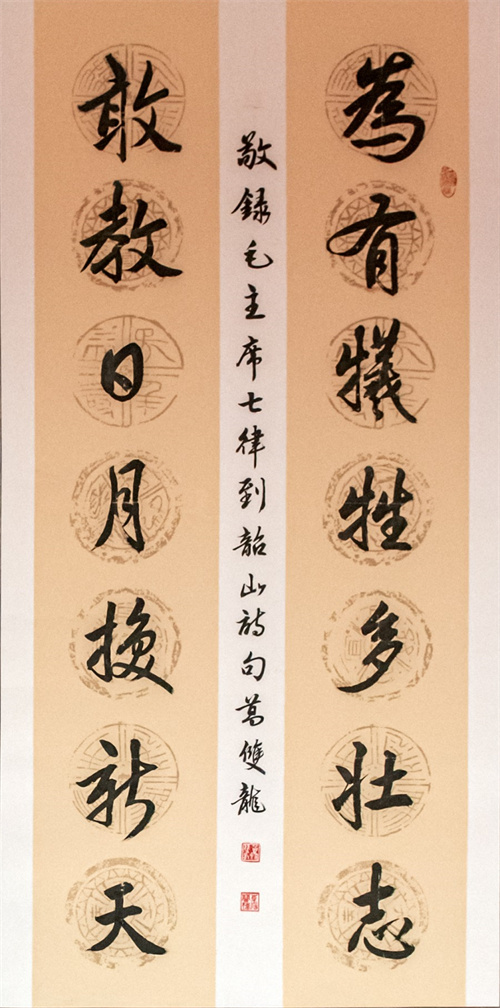 為有犧牲多壯志
敢教日月換新天
敬録毛主席七律到韶山詩句葛雙龍